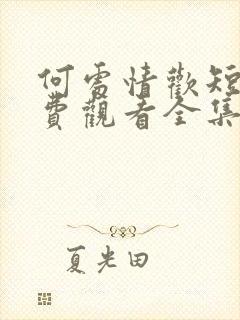 何處情歡短
費觀看全集
夏光田